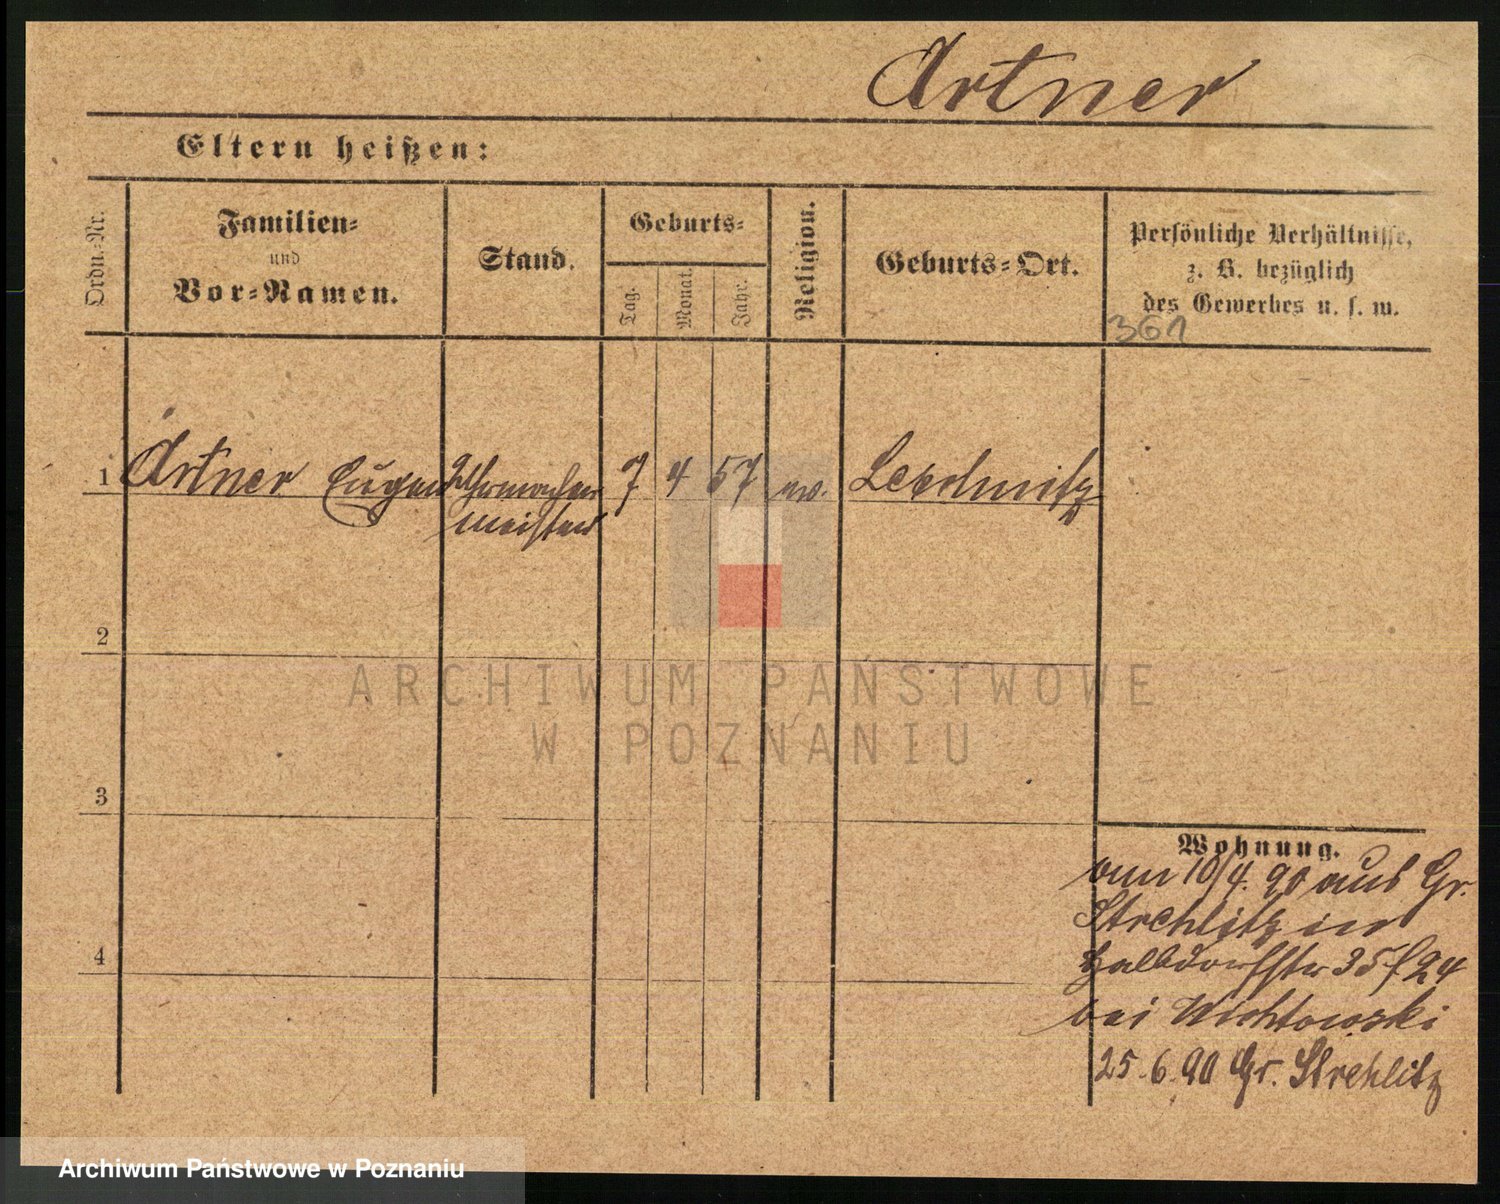 Artner
Eltern heißen:
Ordn.-Nr.
Familien-
und
Vor-Namen.
Stand.
Geburts-
Tag.
Monat.
Jahr.
Religion.
Geburts-Ort.
Persönliche Verhältnisse,
z. B. bezüglich
des Gewerbes u. s. w.
361
1 Artner Eugen Uhrmacher 7 4 57 ev. Leschnitz
meister
2
3
4
Wohnung.
am 10/4. 90 aus Gr.
Strehlitz in
Halbdorfstr 35 f 24
bei
25.6.90 Gr. Strehlitz
ARCHIWUM PAŃSTWOWE
W POZNANIU
Archiwum Państwowe w Poznaniu